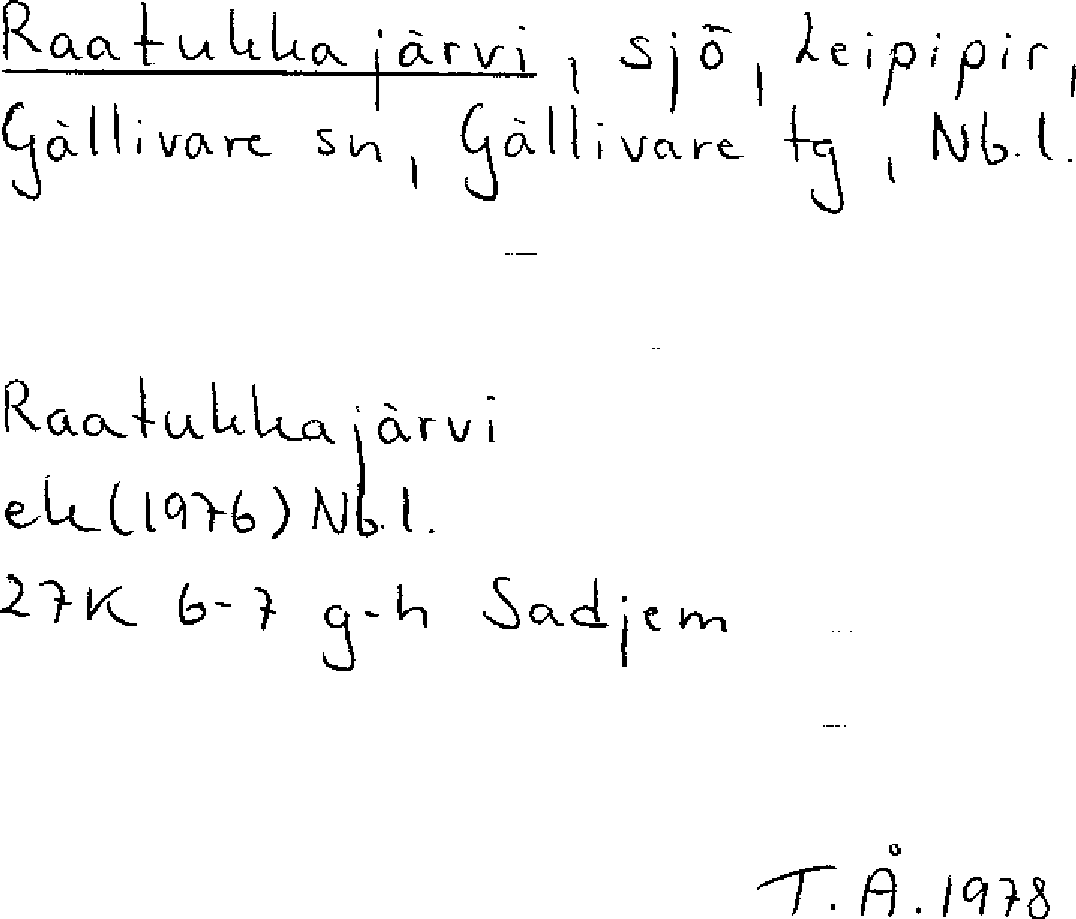 Raatukkajärvi, sjö, Leipipir,
Gällivare sn, Gällivare tg, Nb.l.
Raatukkajärvi
ek (1976) Nb.l.
27K 6-7 g-h Sadjem
T.Å. 1978